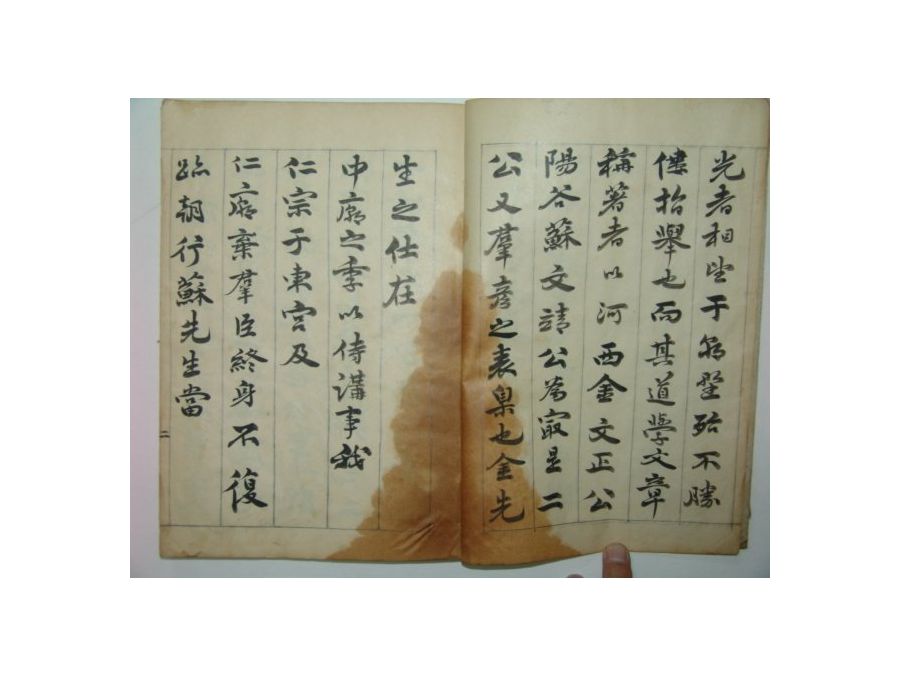 光者相望于朝野殆不勝
僂指舉也而其道學文章
稱著者以河西金文正公
陽谷蘇文靖公為最是二
公又羣彦之表臬也金先
生之仕在
中廟之季以侍講事我
仁宗于東宮及
仁廟棄羣臣終身不復
跡朝行蘇先生當
二